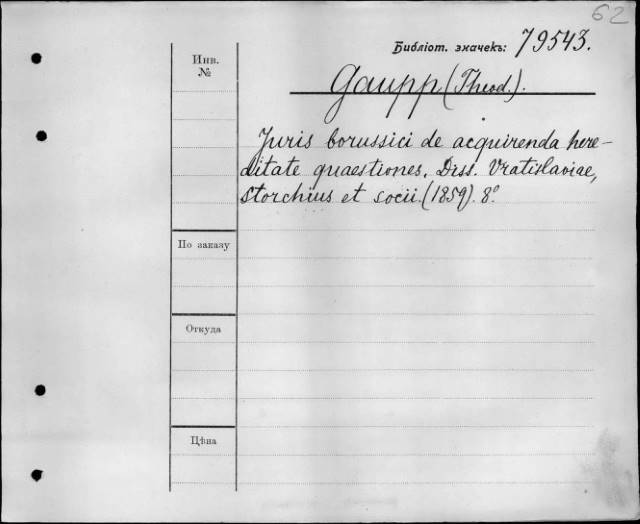 62
Библіот. значекъ: 79543.
Инв.
№
Gaupp (Theod.).
Juris borussici de acquirenda here-
ditate quaestiones. Diss. Vratislaviae,
Storchius et socii. (1859). 8º.
По заказу
Откуда
Цѣна